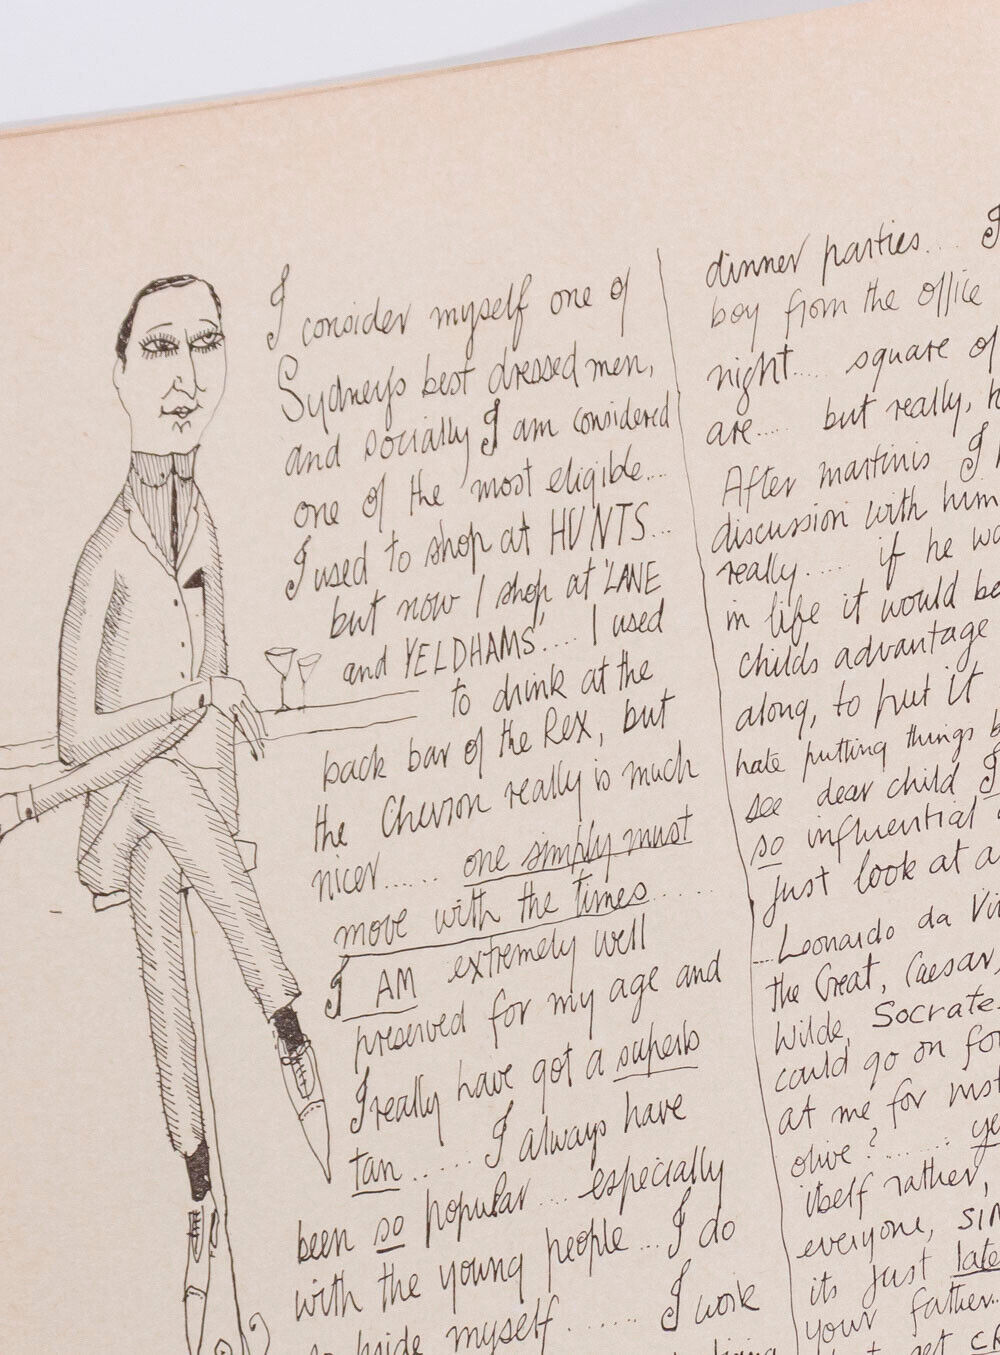 I consider myself one of
Sydneys best dressed men,
and socially I am considered
one of the most eligible...
I used to shop at HUNTS...
but now I shop at 'LANE
and YELDHAMS'.... I used
to drink at the
back bar of the Rex, but
the Chevron really is much
nicer....... one simply must
move with the times......
I AM extremely well
preserved for my age and
I really have got a superb
tan...... I always have
been so popular... especially
with the young people... I do
myself....... I work
dinner parties.... I
boy from the office
night..... square of
are..... but really,
After martinis I
discussion with him
really..... if he
in life it would be
childs advantage
along, to put it
hate putting things
see dear child I
so influential
just look at
...Leonardo da
the Great, Caesar,
Wilde, Socrates
could go on
at me for
olive?.......
itself rather,
everyone,
its just late
your father...
get